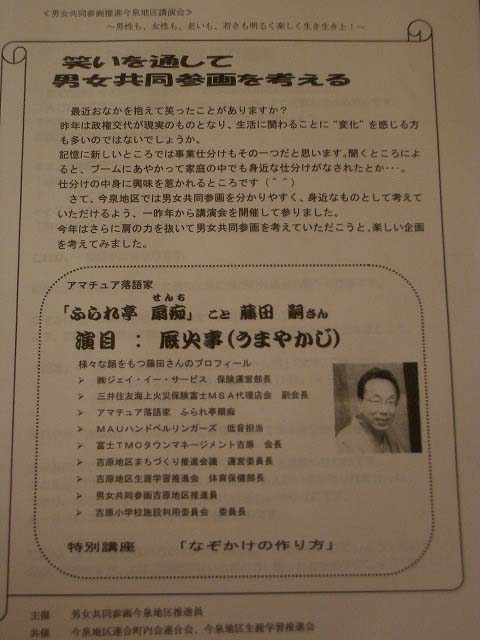 ≪男女共同参画推進今泉地区講演会≫
～男性も、女性も、老いも、若きも明るく楽しく生き生きと！～
笑いを通して
男女共同参画を考える
最近おなかを抱えて笑ったことがありますか？
昨年は政権交代が現実のものとなり、生活に関わることに“変化”を感じる方
も多いのではないでしょうか。
記憶に新しいところでは事業仕分けもその一つだと思います。聞くところによ
ると、ブームにあやかって家庭の中でも身近な仕分けがなされたとか･･･。
仕分けの中身に興味を惹かれるところです（＾＾）
さて、今泉地区では男女共同参画を分かりやすく、身近なものとして考えて
いただけるよう、一昨年から講演会を開催して参りました。
今年はさらに肩の力を抜いて男女共同参画を考えていただこうと、楽しい企画
を考えてみました。
アマチュア落語家
せんち
「ふられ亭 扇痴」こと 藤田 嗣さん
演目 ： 厩火事（うまやかじ）
様々な顔をもつ藤田さんのプロフィール
➢ ㈱ジェイ・イー・サービス 保険運営部長
➢ 三井住友海上火災保険富士ＭＳＡ代理店会 副会長
➢ アマチュア落語家 ふられ亭扇痴
➢ ＭＡＵハンドベルリンガーズ 低音担当
➢ 富士ＴＭＯタウンマネージメント吉原 会長
➢ 吉原地区まちづくり推進会議 運営委員長
➢ 吉原地区生涯学習推進会 体育保健部長
➢ 男女共同参画吉原地区推進員
➢ 吉原小学校施設利用委員会 委員長
特別講座 「なぞかけの作り方」
主催 男女共同参画今泉地区推進員
共催 今泉地区連合町内会連合会、今泉地区生涯学習推進会